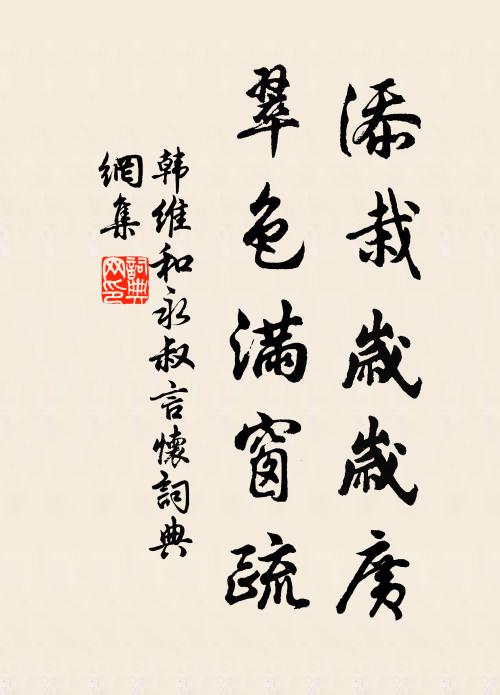 添栽歲歲廣
翠色滿窗疏
韩維和永叔言懷詞典
網集
詞典
网印